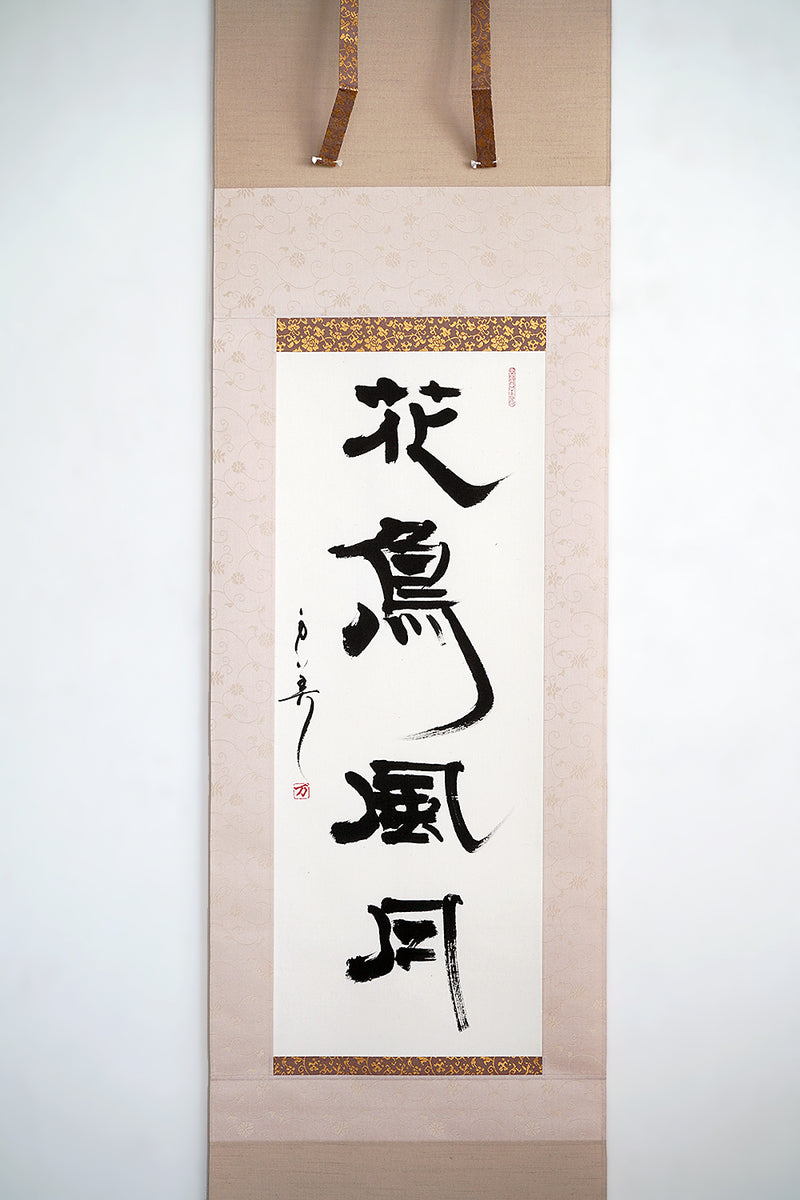 花鳥風月
万